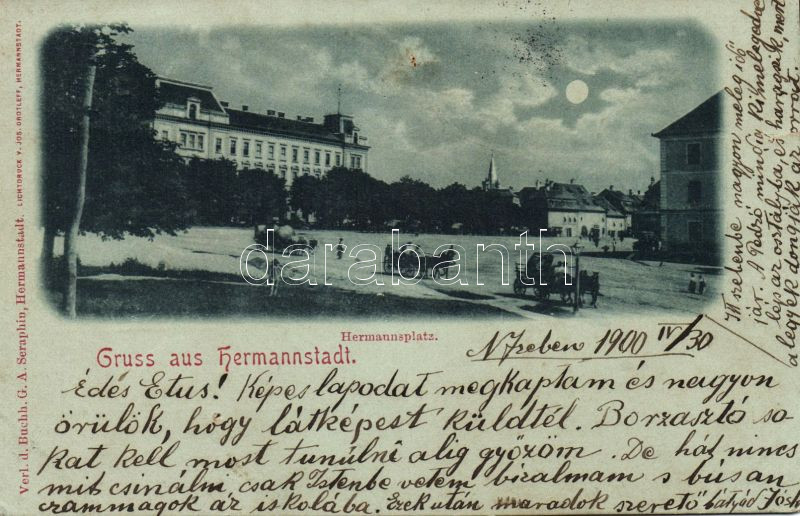 Verl. d. Buchh. G. A. Seraphin, Hermannstadt. LICHTDRUCK V. JOS. DROTLEFF, HERMANNSTADT.
darabanth
Hermannsplatz.
Gruss aus Hermannstadt.
N Szeben 1900 IV/30
Édes Etus! Képes lapodat megkaptam és nagyon
örülök, hogy látképest küldtél. Borzasztó so
kat kell most tunúlni alig győzöm. De hát nincs
mit csinálni csak Istenbe vetem bizalmam s búsan
czammagok az iskolába. Ezek után maradok szerető bátyád Jósk
Itt szebenbe nagyon meleg idő
jár. A Pedró mindig
lép az ostál-ba és haragszik, mert
a legyek dongják az
orrát.